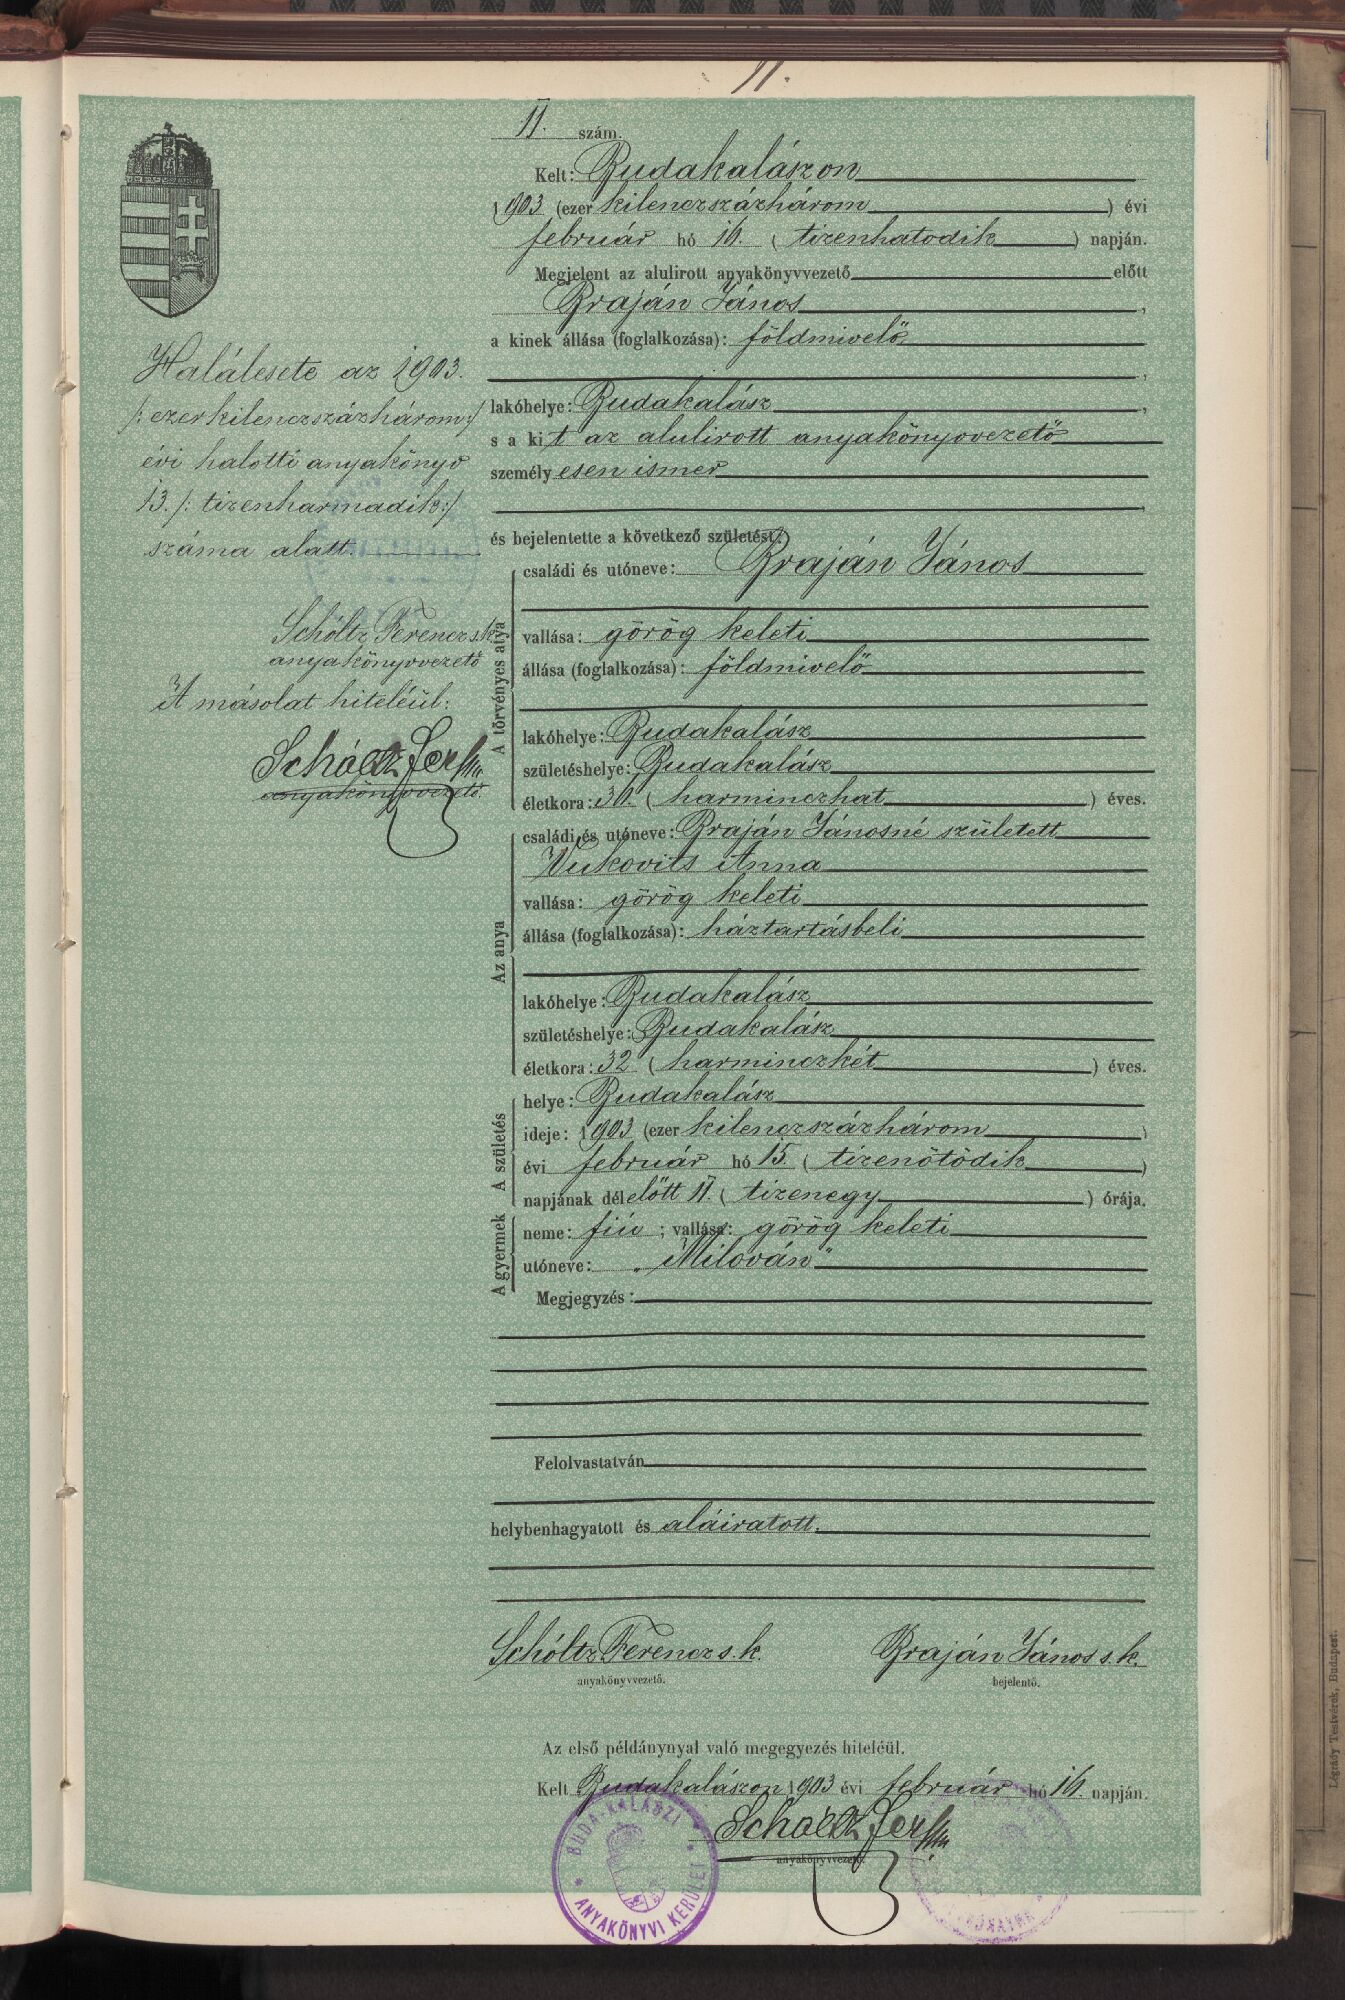 11.
11. szám.
Kelt: Budakalászon
1903 (ezer kilenczszázhárom) évi
február hó 16. (tizenhatodik) napján.
Megjelent az alulirott anyakönyvvezető előtt
Braján János,
a kinek állása (foglalkozása): földmivelő
,
lakóhelye: Budakalász,
s a kit az alulirott anyakönyvvezető
személyesen ismer
,
és bejelentette a következő születést:
A törvényes atya
családi és utóneve: Braján János
vallása: görög keleti
állása (foglalkozása): földmivelő
lakóhelye: Budakalász
születéshelye: Budakalász
életkora: 36. (harminczhat) éves.
Az anya
családi és utóneve: Braján Jánosné született
Vukovits Anna
vallása: görög keleti
állása (foglalkozása): háztartásbeli
lakóhelye: Budakalász
születéshelye: Budakalász
életkora: 32 (harminczkét) éves.
A születés
helye: Budakalász
ideje: 1903 (ezer kilenczszázhárom)
évi február hó 15. (tizenötödik)
napjának délelőtt 11. (tizenegy) órája.
A gyermek
neme: fiú; vallása: görög keleti
utóneve: „Milován”
Megjegyzés:
Felolvastatván
helybenhagyatott és aláiratott.
Schóltz Ferencz s.k. Braján János s.k.
anyakönyvvezető. bejelentő.
Az első példánynyal való megegyezés hiteléül.
Kelt Budakalászon 1903 évi február hó 16. napján.
Schóltz Ferencz
anyakönyvvezető.
BUDA-KALÁSZI ANYAKÖNYVI KERÜLET
Halálesete az 1903.
/: ezerkilenczszázhárom :/
évi halotti anyakönyv
13. /: tizenharmadik :/
száma alatt.
Schóltz Ferencz s.k.
anyakönyvvezető
A másolat hiteléül:
Schóltz Ferencz
anyakönyvvezető.
Légrády Testvérek, Budapest.